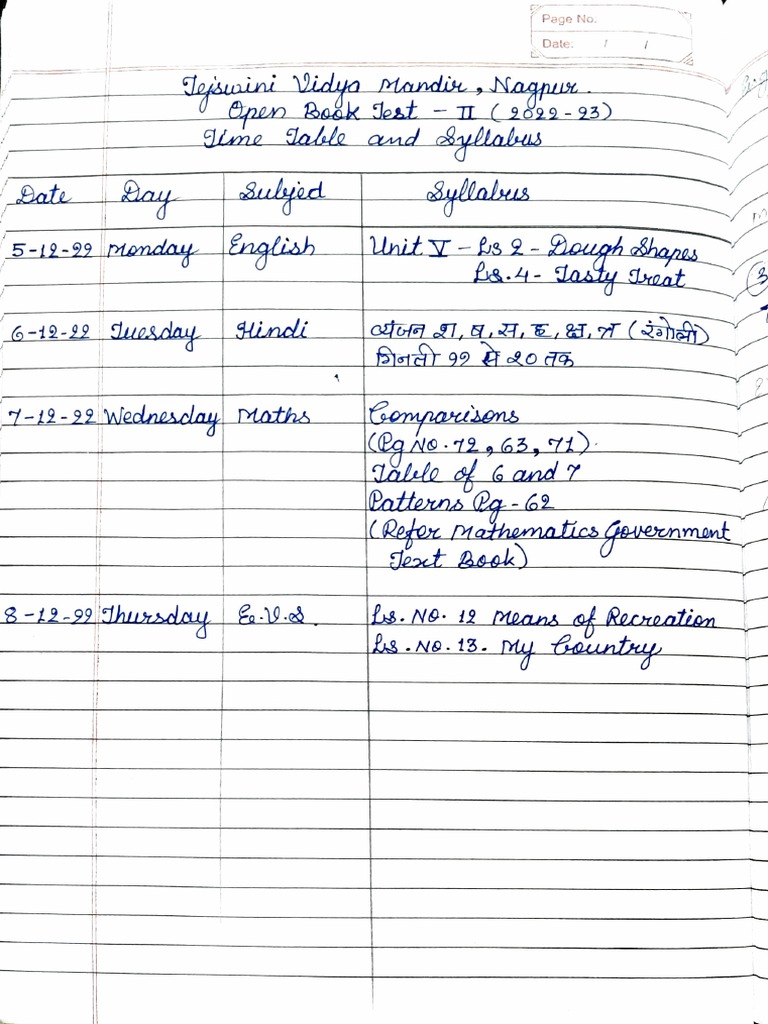 Page No.
Date: / /
Tejswini Vidya Mandir, Nagpur.
Open Book Test - II (2022-23)
Time Table and Syllabus
Date Day Subject Syllabus
5-12-22 Monday English Unit V - Ls 2 - Dough Shapes
Ls. 4 - Tasty Treat
6-12-22 Tuesday Hindi व्यंजन श, ष, स, ह, क्ष, त्र (रंगोली)
गिनती ११ से २० तक
7-12-22 Wednesday Maths Comparisons
(Pg No. 72, 63, 71).
Table of 6 and 7
Patterns Pg - 62
(Refer Mathematics Government
Text Book)
8-12-22 Thursday E.V.S. Ls. No. 12 Means of Recreation
Ls. No. 13. My Country